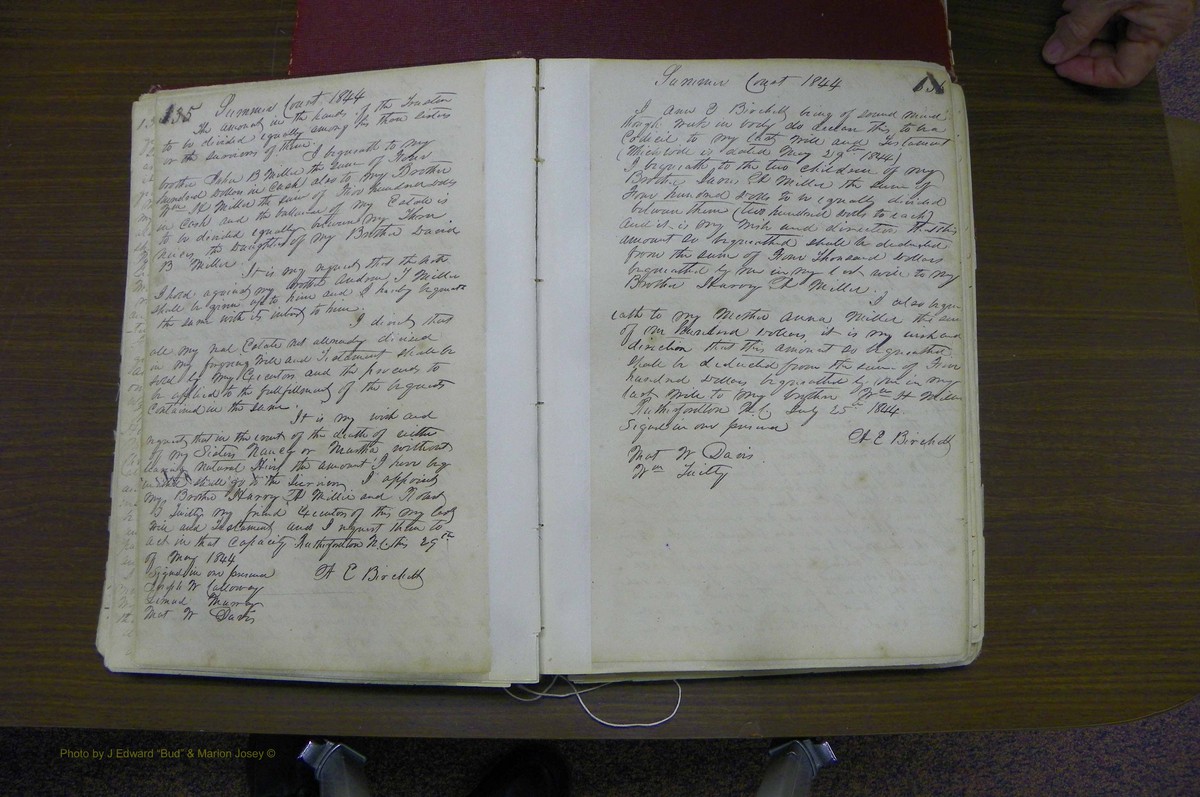 135 Summer Court 1844
The amount in the hands of the Trustee
to be divided equally among his three sisters
or the survivors of them.
I bequeath to my
brother John B Miller the sum of Four
hundred dollars in Cash also to my Brother
Wm H Miller the sum of Five hundred dolls
in Cash and the balance of my Estate is
to be divided equally between my Three
neices the Daughters of my Brother David
B Miller.
It is my request that the note
I hold against my brother Andrew J Miller
shall be given up to him and I hereby bequeath
the same with its interest to him.
I direct that
all my real Estate not already divised
in my foregoing Will and Testament shall be
sold by my Executors and the proceeds to
be applied to the fullfillment of the bequests
Contained in the same.
It is my wish and
request that in the event of the death of either
of my Sisters Nancy or Martha without
leaving natural Heirs the amount I have beq
shall go to the Survivor, I appoint
my Brother Harvey H Miller and
B my friend Executors of this my last
Will and Testament and I request them to
act in that Capacity Rutherfordton N.C. this 29th
of May 1844
Signed in our presence A E Birchett
Joseph W Calloway
Mat W Davis
Summer Court 1844 136
I Ann E Birchett being of sound mind
though weak in body do declare this to be a
Codicil to my last Will and Testament
(Which will is dated May 29th 1844)
I bequeath to the two children of my
Brother David H Miller the sum of
Four hundred dolls to be equally divided
between them (two hundred dolls to each)
And it is my wish and direction that this
amount so bequeathed shall be deducted
from the sum of Four Thousand dollars
bequeathed by me in my last will to my
Brother Harvey H Miller.
I also beque
eath to my Mother Anna Miller the sum
of One hundred dollars, it is my wish and
direction that this amount so bequeathed
shall be deducted from the sum of Five
hundred dollars bequeathed by me in my
last Will to my brother Wm H Miller
Rutherfordton N.C. July 25th 1844
Signed in our presence
A E Birchett
Mat W Davis.
Wm
Photo by J Edward "Bud" & Marion Josey ©